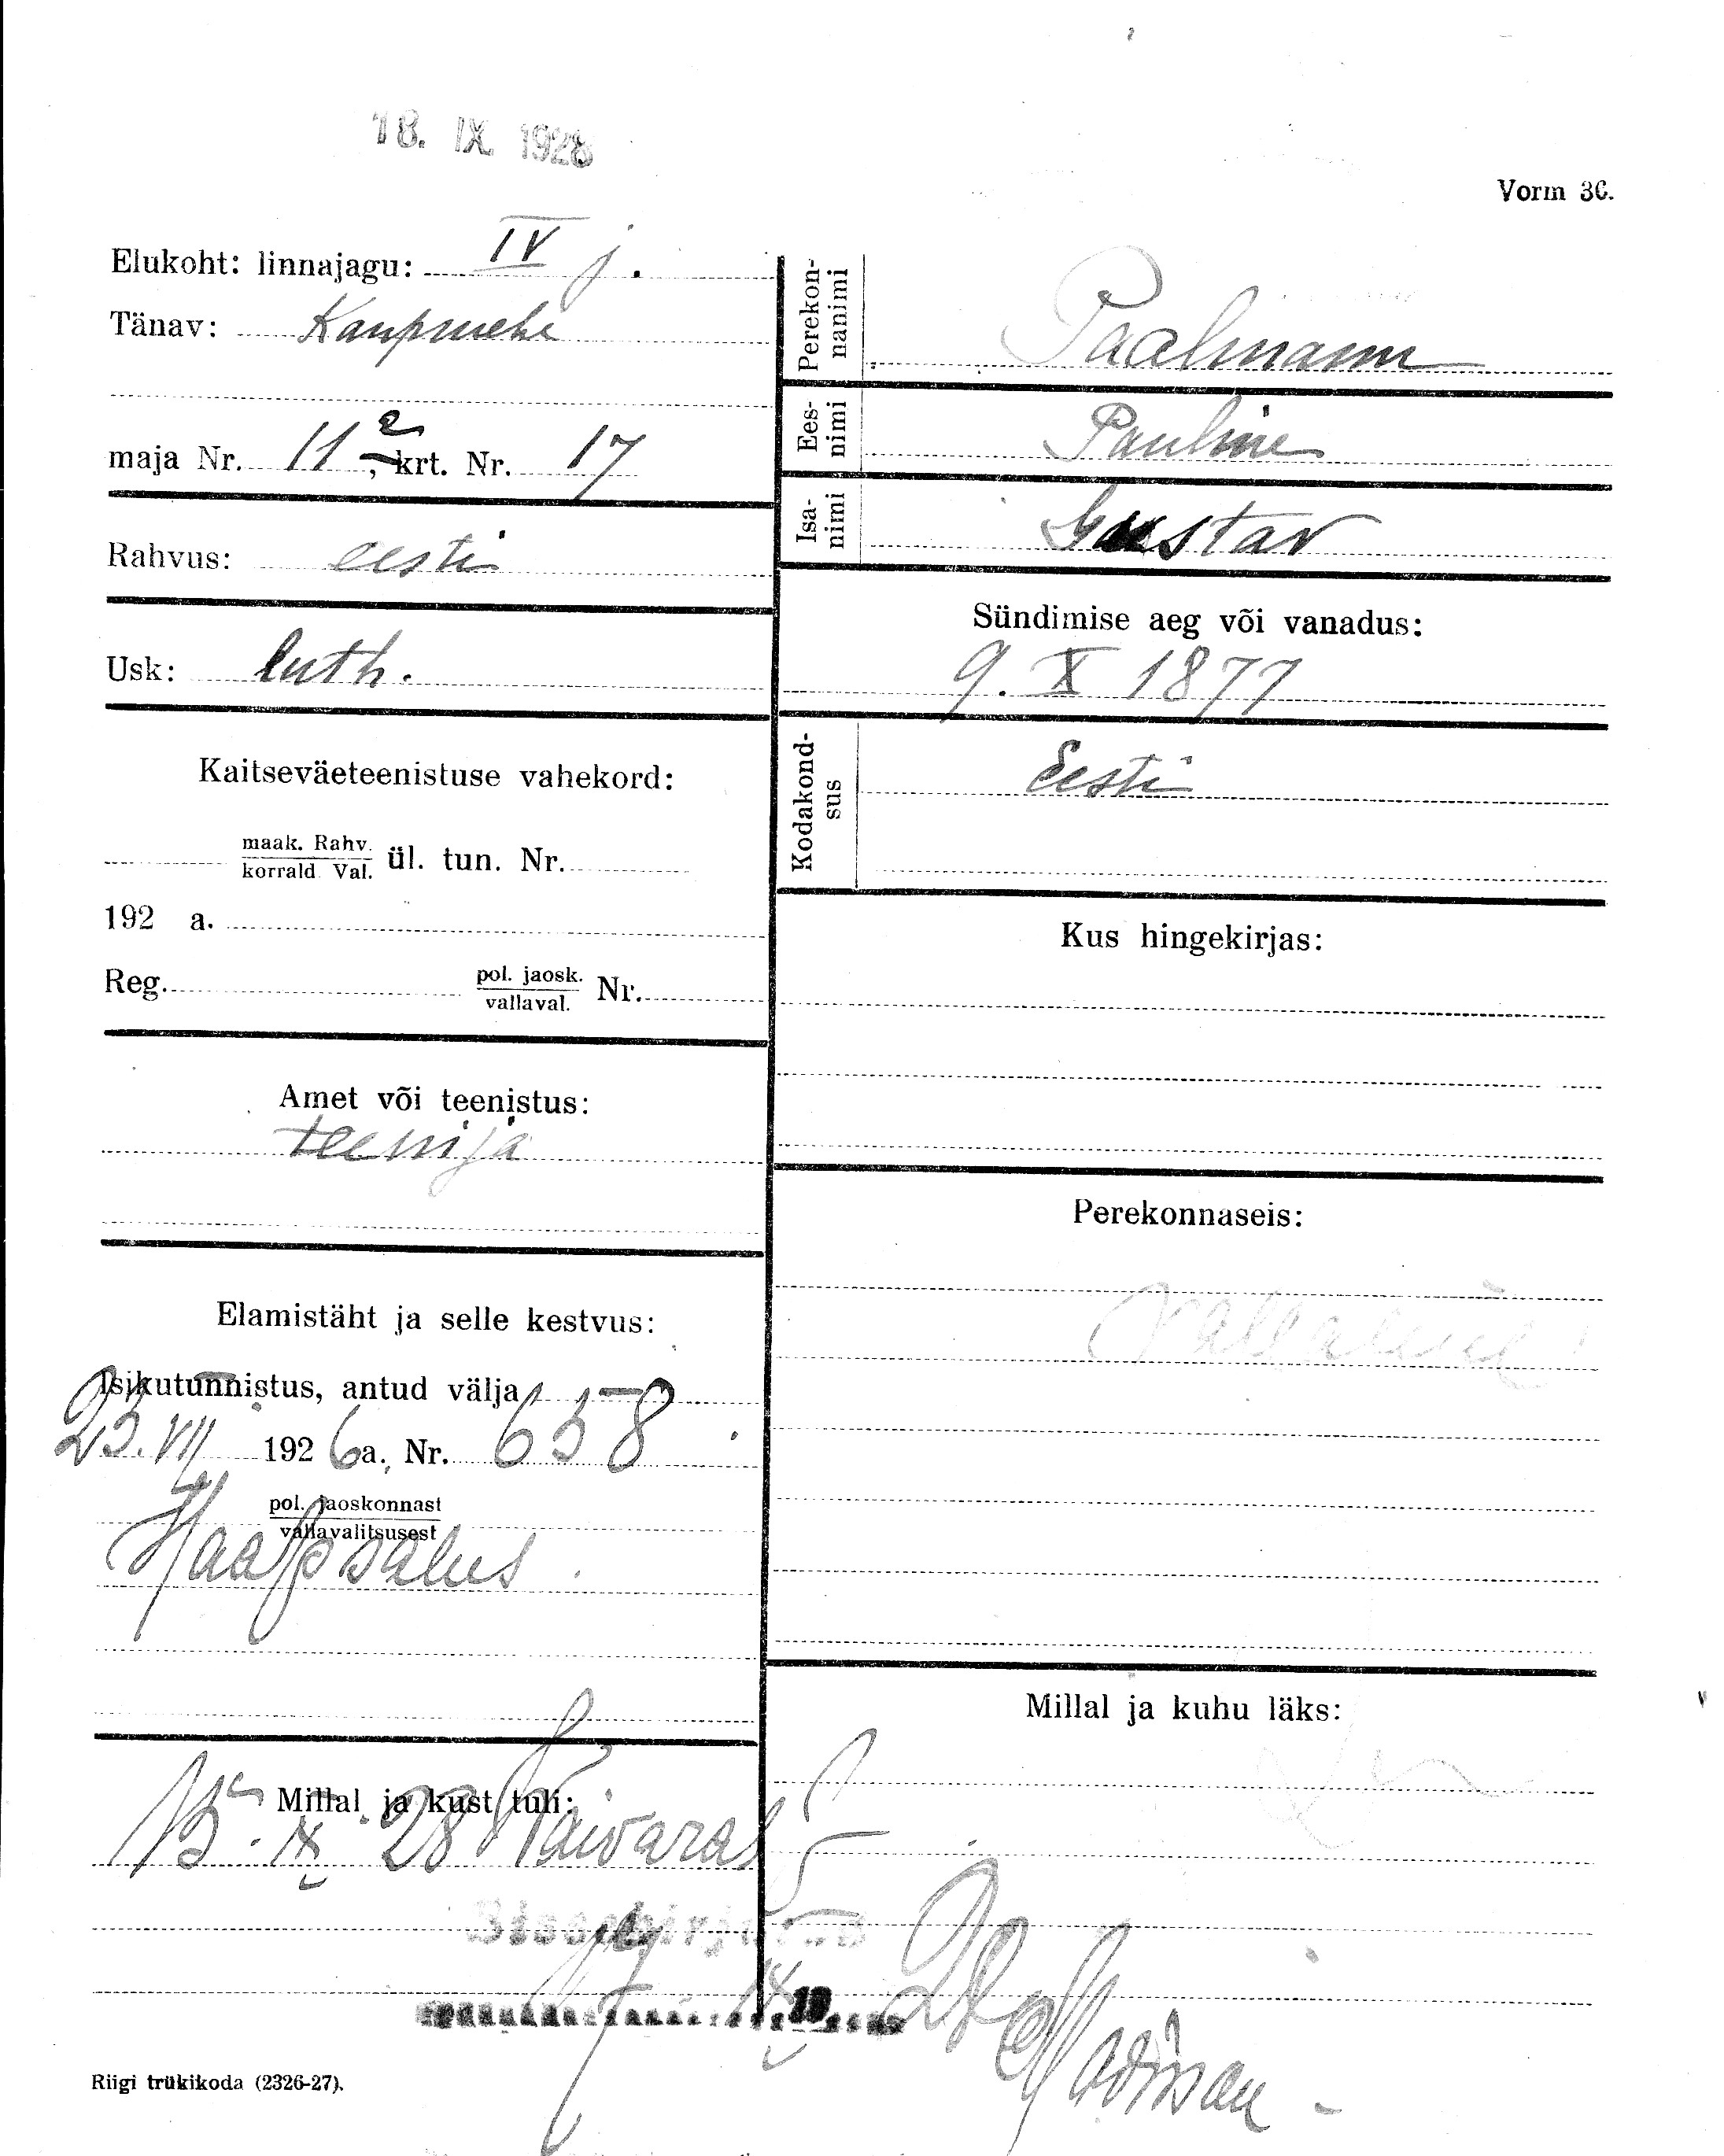 18. IX 1928
Vorm 3C.
Elukoht: linnajagu: IV j.
Tänav: Kaupmehe
maja Nr. 11 a, krt. Nr. 17
Rahvus: eesti
Usk: luth.
Kaitseväeteenistuse vahekord:
maak. Rahv.
korrald. Val. ül. tun. Nr.
192 a.
Reg. pol. jaosk.
vallaval. Nr.
Amet või teenistus:
teenija
Elamistäht ja selle kestvus:
Isikutunnistus, antud välja
23. VII 1926 a., Nr. 658
pol. jaoskonnast
vallavalitsusest
Haapsalus
Millal ja kust tuli:
15. IX 28 Vaivarast
Sissekirjutus
IX 19 28
Riigi trükikoda (2326-27).
Perekon-
nanimi
Paalmann
Ees-
nimi
Pauline
Isa-
nimi
Gustav
Sündimise aeg või vanadus:
9. X 1877
Kodakond-
sus
Eesti
Kus hingekirjas:
Perekonnaseis:
Vallaline
Millal ja kuhu läks: